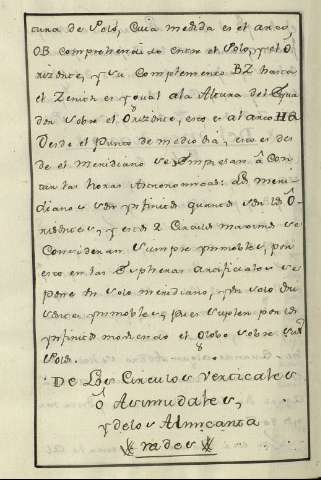 tura de Polo, Cuia medida es el arco,
OB comprehendido entre el Polo, y el O
rizonte, y su Complemento BZ hasta
el Zenith es ygual ala Altura del Equa
dor sobre el Orizonte, esto es al arco HQ
Desde el Punto de medio dia, esto es des
de el meridiano se Empiesan â Con
tar las horas Astronomicas: los meri-
dianos son ynfinitos quantos son los O-
rizontes, y estos 2 Circulos maximos se
Consideran siempre ynmobles, por
esto en las Espheras Artificiales se
pone Un solo meridiano, y Un solo Ori
zonte ynmobles, pues suplen por los
ynfinitos moviendo el Globo sobre sus
Polos.
De Los Circulos Verticales
ô Asimudales,
y delos Almicanta
rades